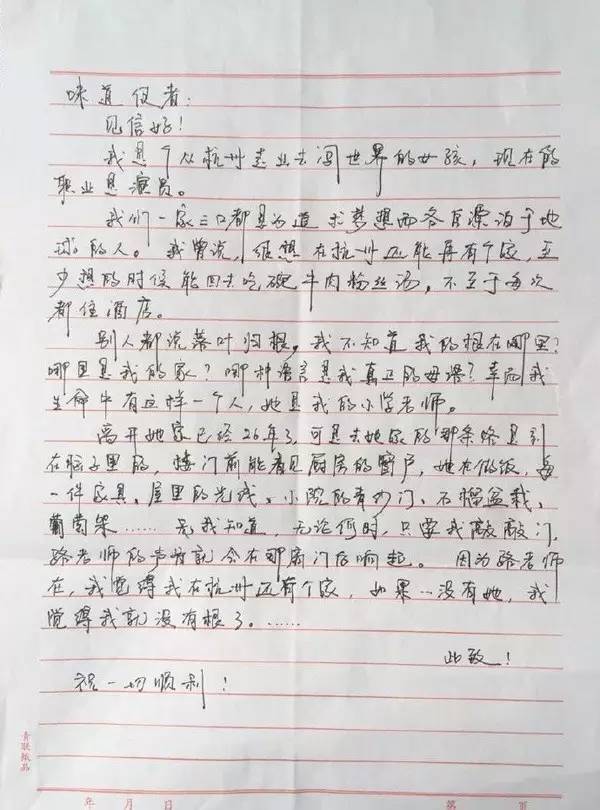 味道使者：
见信好！
我是个从杭州走出去闯世界的女孩，现在的
职业是演员。
我们一家三口都是为追求梦想而各自漂泊于地
球的人。我曾说，很想在杭州还能再有个家，至
少想的时候能回去吃碗牛肉粉丝汤，不至于每次
都住酒店。
别人都说落叶归根，我不知道我的根在哪里？
哪里是我的家？哪种语言是我真正的母语？幸而我
生命中有这样一个人，她是我的小学老师。
离开她家已经26年了，可是去她家的那条路是刻
在脑子里的，楼门前能看见厨房的窗户，她在做饭，每
一件家具、屋里的光线、小院的青纱门、石榴盆栽，
葡萄架……是我知道，无论何时，只要我敲敲门，
骆老师的声音就会在那扇门后响起。因为骆老师
在，我觉得我在杭州还有个家，如果…没有她，我
觉得我就没有根了。……
此致！
祝一切顺利！
青联纸品
年 月 日 第 页